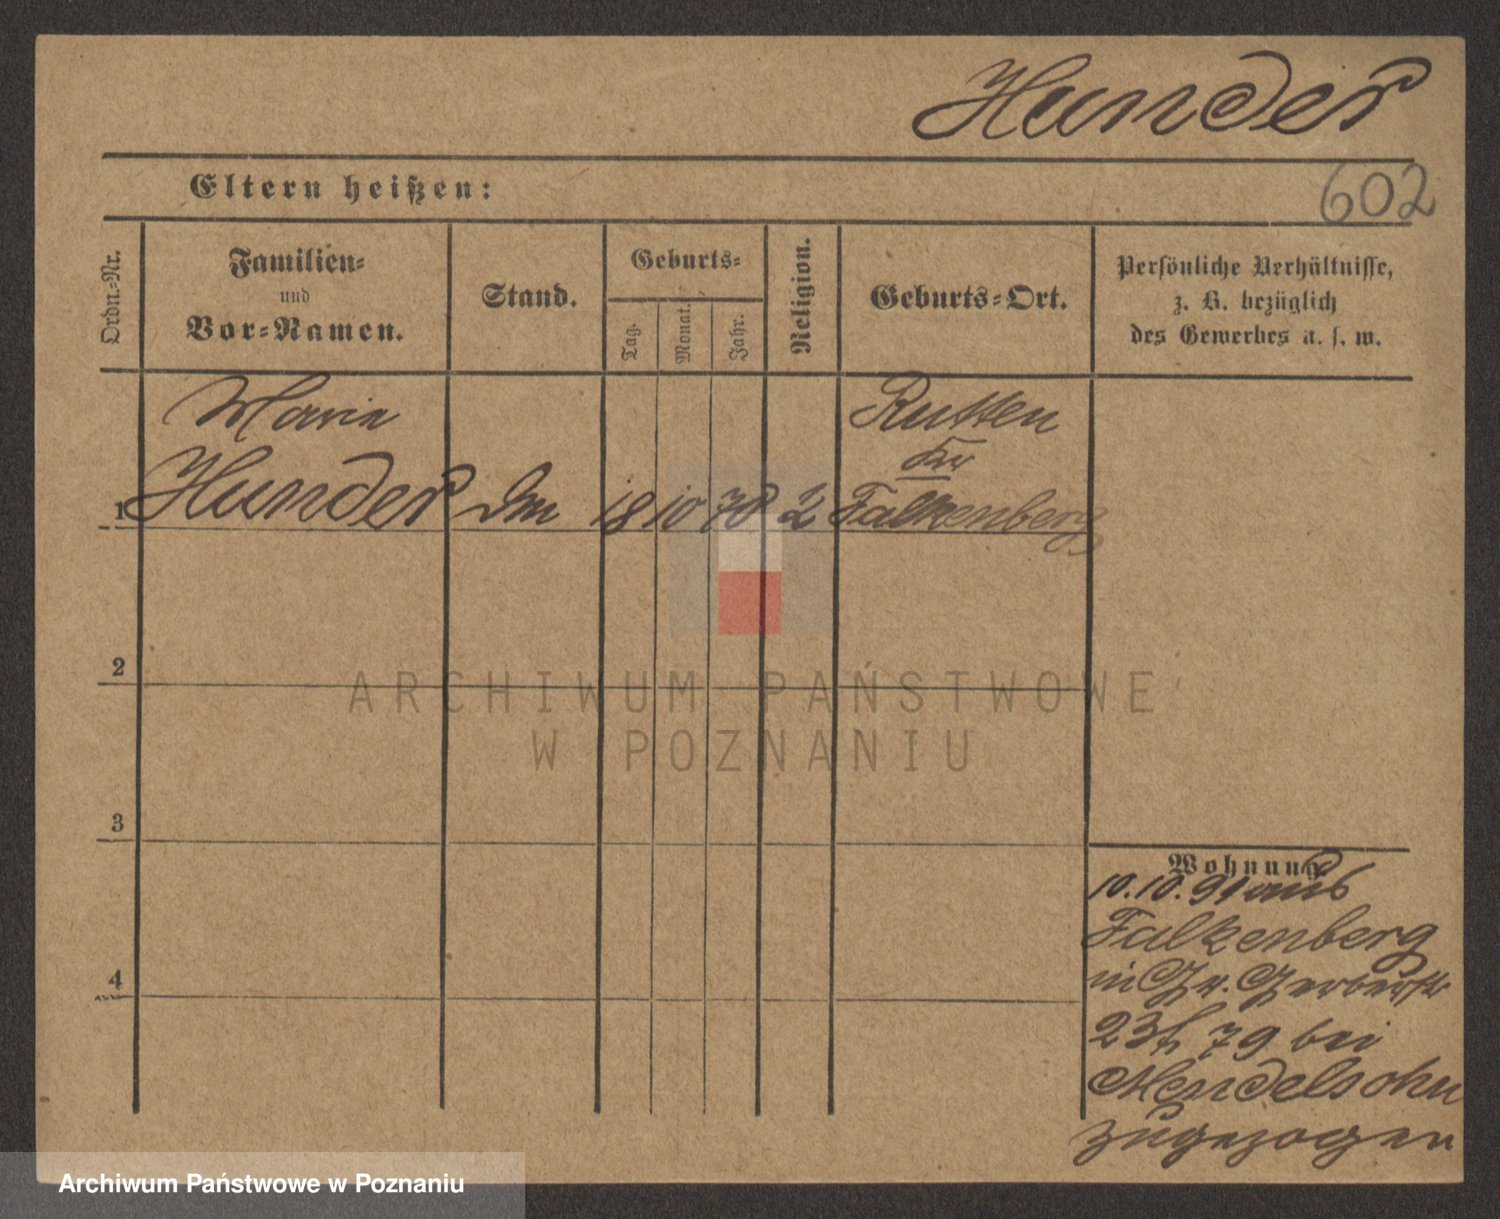 Hunder
602
Eltern heißen:
Ordn.-Nr.
Familien-
und
Vor-Namen.
Stand.
Geburts-
Tag.
Monat.
Jahr.
Religion.
Geburts-Ort.
Persönliche Verhältnisse,
z. B. bezüglich
des Gewerbes u. s. w.
Marie
Hunder
18 10 78 2
Kr
Falkenberg
1
2
3
4
Wohnung.
10.10.91 aus
Falkenberg
in Gr. Gerberstr
23 79 bei
Mendelsohn
zugezogen
ARCHIWUM PAŃSTWOWE
W POZNANIU
Archiwum Państwowe w Poznaniu